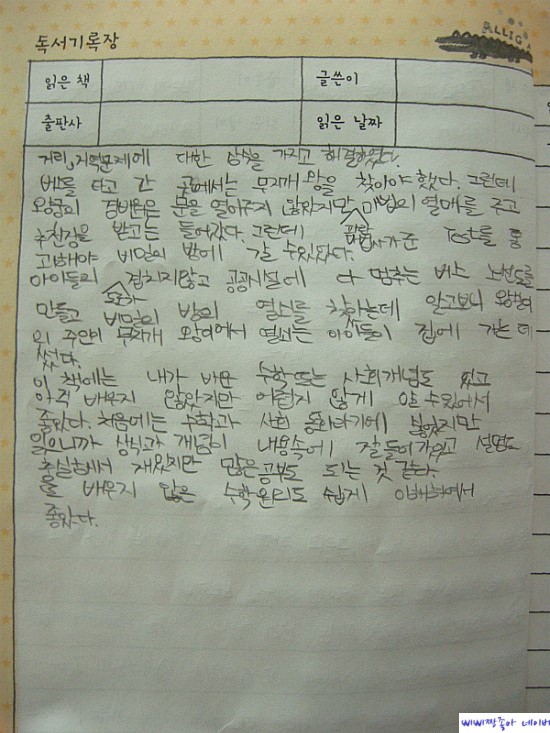 ALLIG
독서기록장
읽은 책
글쓴이
출판사
읽은 날짜
거리, 지역문제에 대한 상식을 가지고 해결하였다.
버스를 타고 간 곳에서는 무지개 왕을 찾아야 했다. 그런데
왕궁의 경비원은 문을 열어주지 않았지만 마법의 열매를 주고
추천장을 받고는 들어갔다. 그런데 마법사가 준 Test를 통
과해야 비밀의 방에 갈 수 있었다.
아이들의 겹치지않고 공공시설에 다 멈추는 버스 노선도를
만들고 비밀의 방의 열쇠를 찾하는데 알고보니 왕궁
의 주인의 무지개 왕이여서 열쇠는 아이들이 집에 가는 데
썼다.
이 책에는 내가 배운 수학또는 사회개념도 있고
아직 배우지 않았지만 어렵지 않게 알 수있어서
좋았다. 처음에는 수학과 사회 동화라기에 싫었지만
읽으니까 상식과 개념이 내용속에 잘들어가있고 설명도
충실해서 재밌지만 많은공부도 되는 것 같다.
을 배우지 않은 수학원리도 쉽게 이해해서
좋았다.
위위짱좋아 네이버